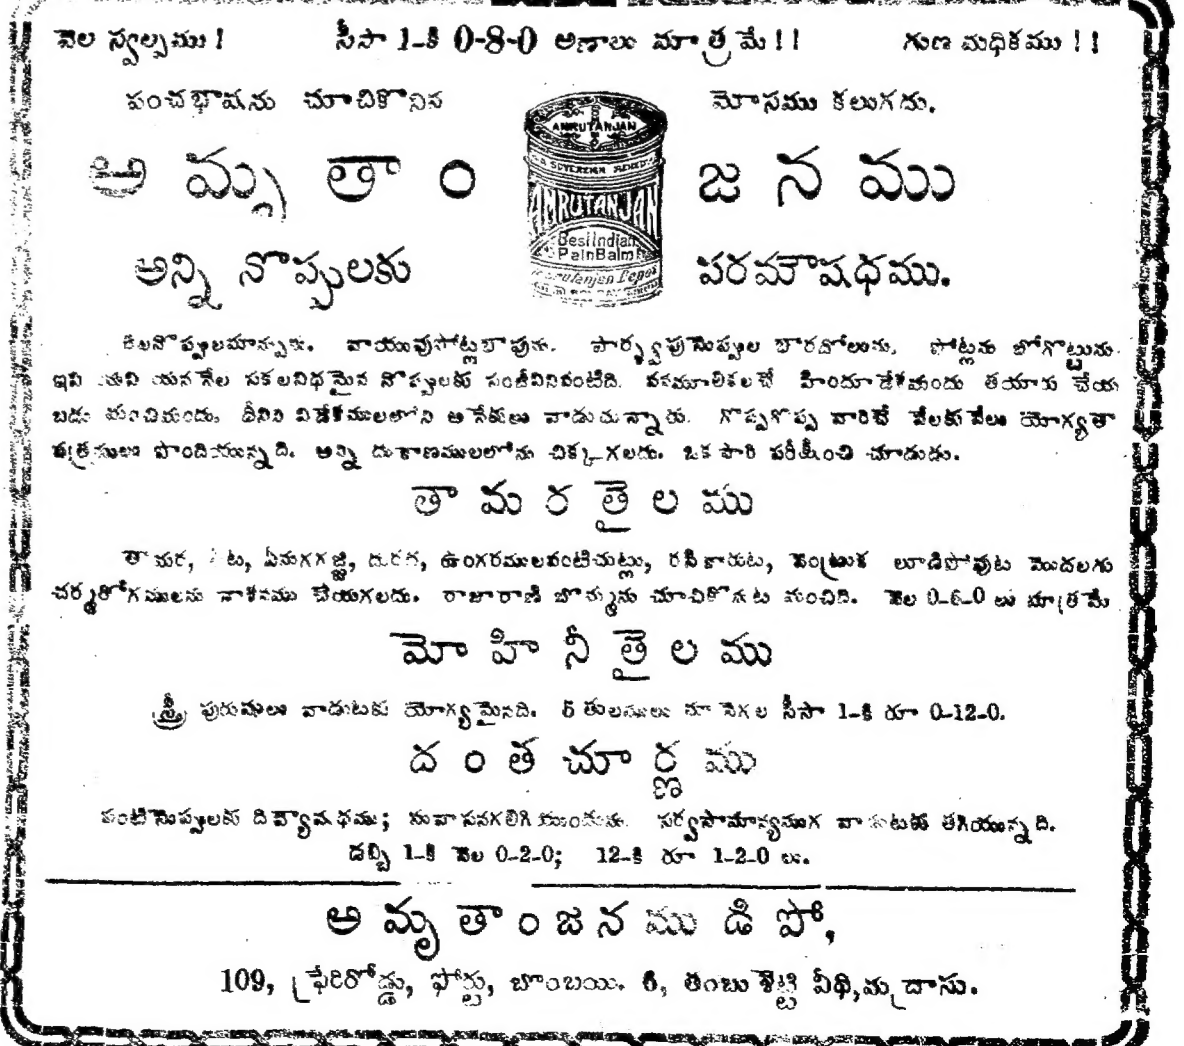 వెల స్వల్పము! సీసా 1-కి 0-8-0 అణాలు మాత్రమే!! గుణ మధికము!!
పంచభాషను చూచికొనిన మోసము కలుగదు.
AMRUTANJAN
అమృతాంజనము
AMRUTANJAN
Desi Indian
Pain Balm
అన్ని నొప్పులకు పరమౌషధము.
తలనొప్పులమాన్పును. వాయువుపోట్లబాపును. పార్శ్వపునొప్పుల భారదోలును. పోట్లను బోగొట్టును.
ఇది యని యననేల సకలవిధమైన నొప్పులకు సంజీవినివంటిది. వనమూలికలచే హిందూదేశమందు తయారు చేయ
బడు మంచిమందు. దీనిని విదేశములలోని అనేకులు వాడుచున్నారు. గొప్పగొప్ప వారిచే వేలకువేలు యోగ్యతా
పత్రములు పొందియున్నది. అన్ని దుకాణములలోను చిక్కగలదు. ఒక సారి పరీక్షించి చూడుడు.
తామరతైలము
తామర, ఏనుగగజ్జి, దురద, ఉంగరములవంటిచుట్లు, రసికారుట, వెంట్రుక లూడిపోవుట మొదలగు
చర్మరోగములను నాశనము చేయగలదు. రాజారాణి బొమ్మను చూచికొనుట మంచిది. వెల 0-6-0 లు మాత్రమే
మోహినీతైలము
స్త్రీ పురుషులు వాడుటకు యోగ్యమైనది. 6 తులములు సీసా 1-కి రూ 0-12-0.
దంతచూర్ణము
పంటినొప్పులకు దివ్యౌషధము; సువాసనగలిగి యుండును. సర్వసామాన్యముగ వాడుటకు తగియున్నది.
డబ్బి 1-కి వెల 0-2-0; 12-కి రూ 1-2-0 లు.
అమృతాంజనము డిపో,
109, ఫ్రేరిరోడ్డు, ఫోర్టు, బొంబయి. 6, తంబుశెట్టి వీథి, మద్రాసు.